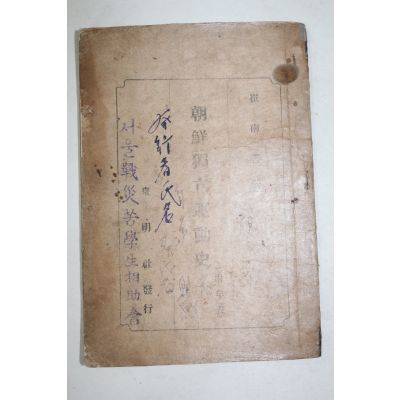 崔南善
朝鮮獨立運動史
者氏名
東明社發行
서울戰災苦學生相助會